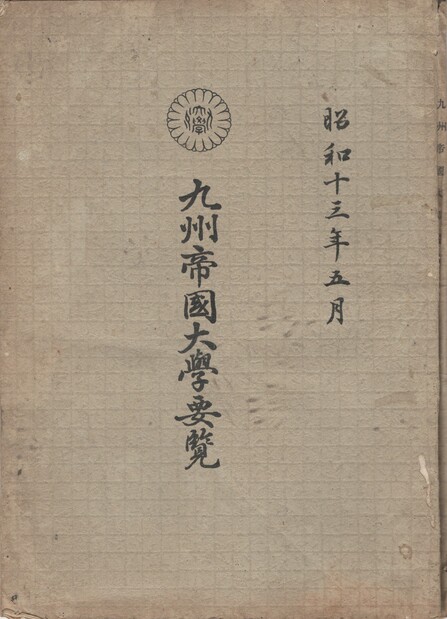 昭和十三年五月
大學
九州帝國大學要覽
九州帝國